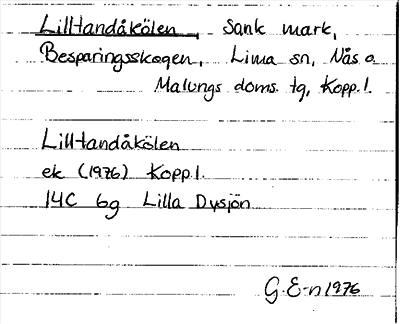 Lilltandåkölen, Sank mark,
Besparingsskogen, Lima sn, Nås o.
Malungs doms. tg, Kopp.l.
Lilltandåkölen
ek (1976) Kopp.l.
14C 6g Lilla Dysjön
G.E-n 1976